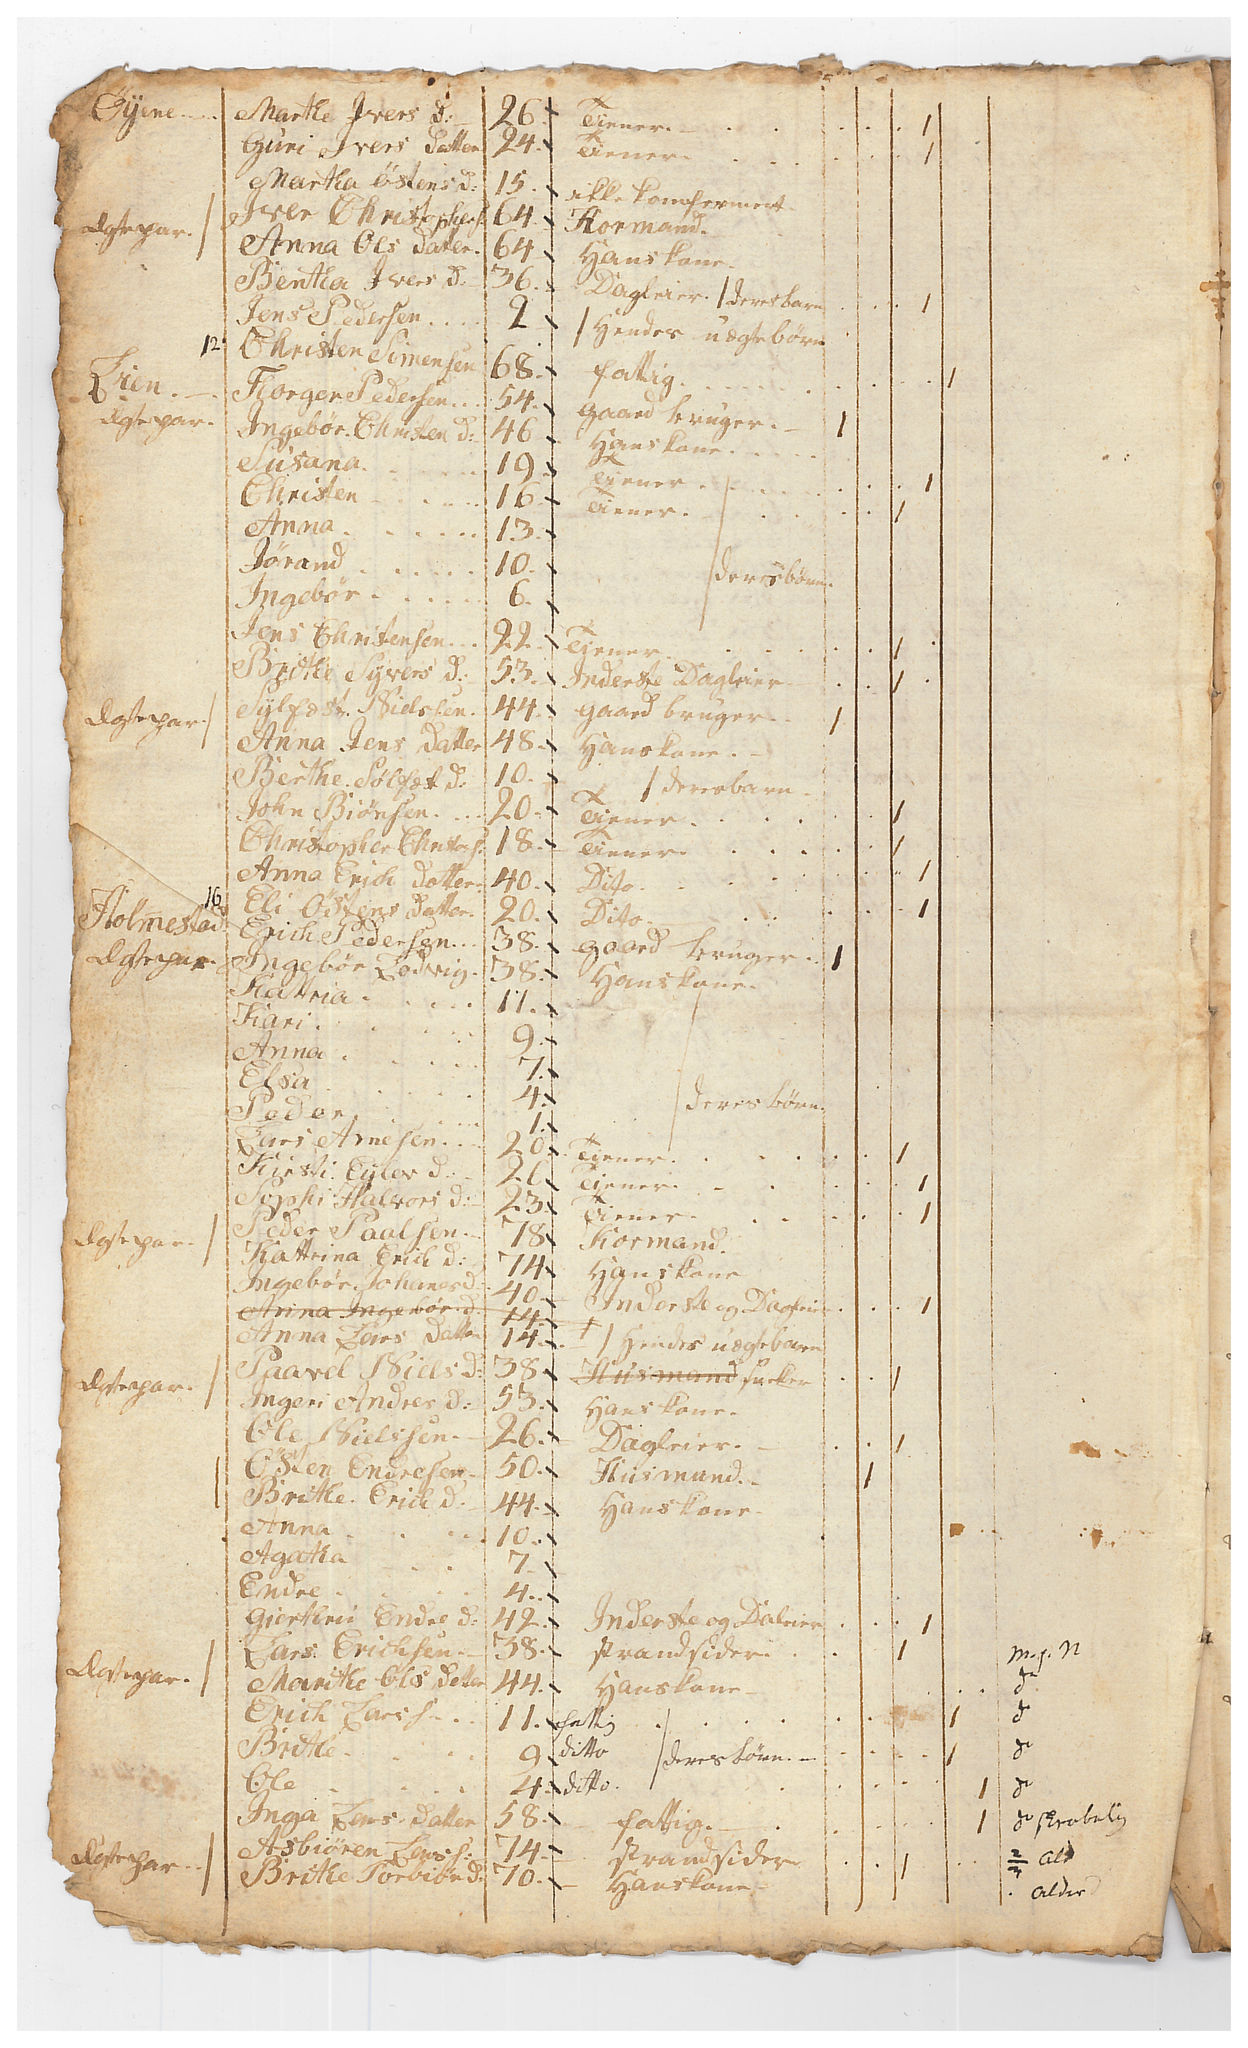 Öyene Marthe Ivers d: 26. Tiener. 1
Guri Ivers datter 24. Tiener. 1
Martha Östens d: 15. ikke komfermert.
Ægtepar. Iver Christophers. 64. Kormand.
Anna Ols datter. 64 Hans kone.
Bentha Ivers d. 36. Dagleier. / deres barn 1
Jens Pedersen 2 / Hendes uægtebörn
12 Christen Simensen 68. fattig. 1
Lien. Torger Pedersen 54. gaard bruger. 1
Ægtepar. Ingebör. Christen d: 46 Hans kone.
Susana. 19 Tiener. 1
Christen 16 Tiener. 1
Anna. 13.
Jörand 10. deres börn.
Ingebör 6.
Jens Christensen 22. Tjener. 1
Brithe Syvers d: 53. Inderste Dagleier 1
Ægtepar. Sylfæst. Nielssen. 44. gaard bruger. 1
Anna Jens datter 48. Hans kone.
Berthe. Sölfæst d: 10. / deres barn.
John Biönsen. 20. Tjener. 1
Christopher Christoph. 18. Tiener. 1
Anna Erich datter. 40. Dito. 1
16 Eli Östens datter. 20. Dito. 1
Holmestad. Erich Pedersen 38. gaard bruger. 1
Ægtepar. Ingebör Lodvig. 38. Hans kone.
Katria. 11.
Kari. 9.
Anna. 7.
Elsa 4. deres börn.
Peder 1.
Lars Arnesen. 20. Tjener. 1
Kirsti. Eyler d. 26 Tjener. 1
Sophi Halvors d: 23. Tiener. 1
Ægtepar. Peder Paalsen. 78 Kormand.
Kattrina Erich d: 74. Hans kone
Ingebör. Johanes d: 40 Inderste og Dagleier 1
Anna Ingebör. d. 14
Anna Lars datter 14. / Hendes uægtebarn
Ægtepar. Paavel Niels d: 38 Husmand 1
Ingeri Andres d: 53. Hans kone.
Ole Nielssen. 26. Dagleier. 1
Östen Endresen 50. Husmand. 1
Brithe. Erich d. 44. Hans kone
Anna 10.
Agatha 7
Endre 4.
Endre d: 42. Inderste og Daleier 1
Lars. Erichsen. 38. strandsider. 1
Ægtepar. Marithe Ols detter 44. Hans kone do
Erich Larss. 11. fattig 1 do
Brithe. 9 ditto / deres börn. 1 do
Ole 4. ditto. 1 do
Inga Lars datter 58. fattig. 1 do skrobelig
Asbiören Larss. 74 strandsider 1 ald
Ægtepar. Brithe Torbiör d: 70. Hans kone alder